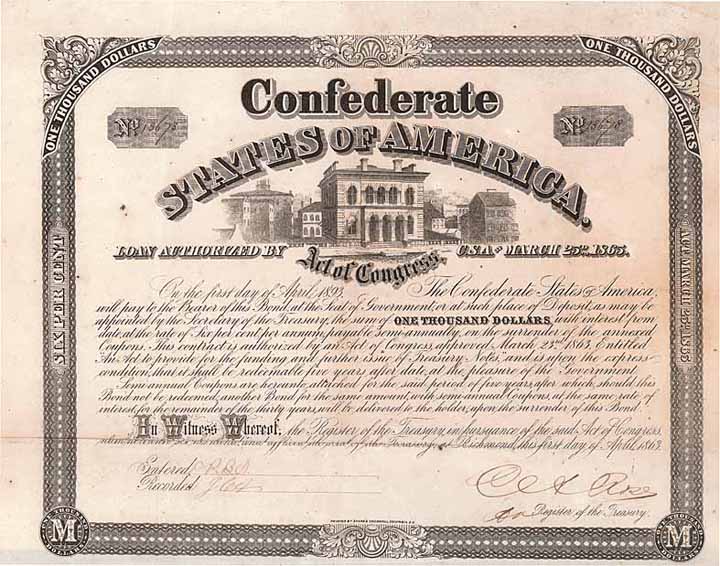 ONE THOUSAND DOLLARS
ONE THOUSAND DOLLARS
Confederate
No 13675
No
STATES OF AMERICA,
LOAN AUTHORIZED BY Act of Congress, C.S.A. OF MARCH 23RD 1863.
SIX PER CENT
ACT MARCH 23RD 1863
On the first day of April, 1893, The Confederate States of America,
will pay to the Bearer of this Bond, at the Seat of Government, or at such place of Deposit, as may be
appointed by the Secretary of the Treasury, the sum of ONE THOUSAND DOLLARS with interest from
date, at the rate of Six per Cent per annum, payable Semi-annually, on the surrender of the annexed
Coupons. This contract is authorized by an Act of Congress approved, March 23d 1863, Entitled
"An Act to provide for the funding and further issue of Treasury Notes," and is upon the express
condition, that it shall be redeemable five years after date, at the pleasure of the Government.
Semi-annual Coupons are hereunto attached for the said period of five years, after which, should this
Bond not be redeemed, another Bond for the same amount, with semi-annual Coupons, at the same rate of
interest, for the remainder of the thirty years, will be delivered to the holder, upon the surrender of this Bond.
In Witness Whereof, the Register of the Treasury, in pursuance of the said Act of Congress,
at Richmond, this first day of April, 1863.
Entered
Recorded
Rose
Register of the Treasury.
M
ONE THOUSAND DOLLARS
M
ONE THOUSAND DOLLARS